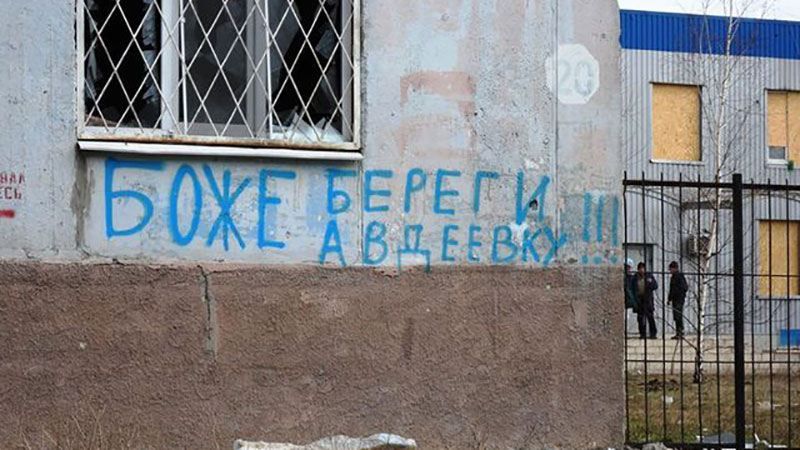 БОЖЕ БЕРЕГИ
АВДЕЕВКУ!!!
20
ЕСЬ